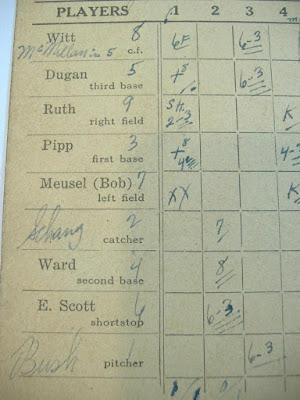 PLAYERS 1 2 3 4
Witt 8 6F 6-3
McMillan in 5 c.f.
Dugan 5 6-3
third base
Ruth 9 S.H. K
right field 2-3
Pipp 3
first base
Meusel (Bob) 7 XX K
left field
Schang 2 7
catcher
Ward 4 8
second base
E. Scott 6 6-3
shortstop
Bush 1 6-3
pitcher